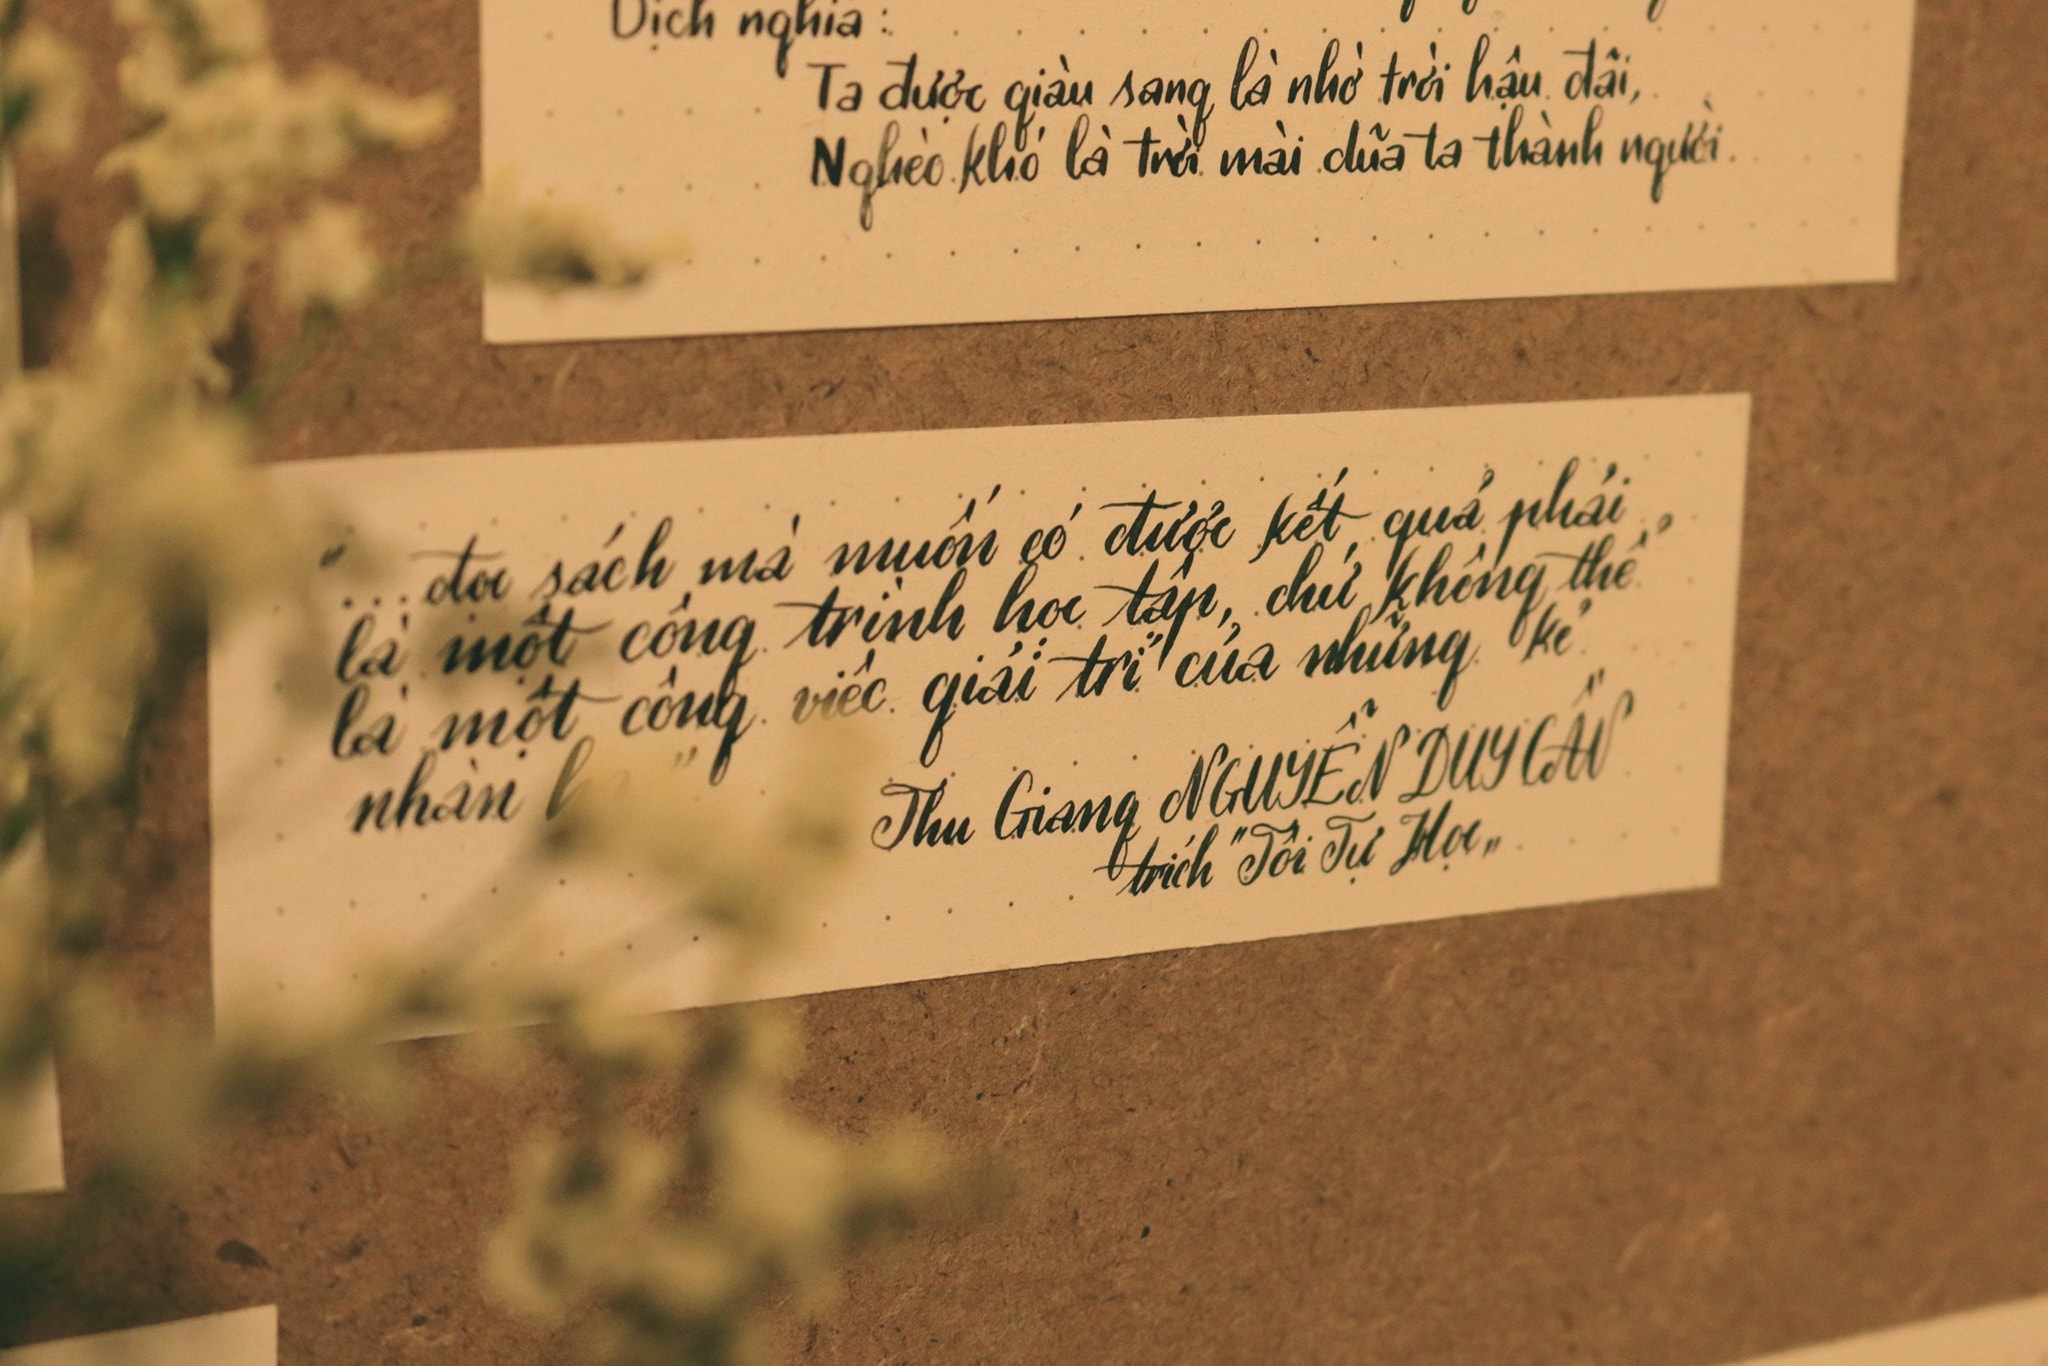 Dịch nghĩa :
Ta được giàu sang là nhờ trời hậu đãi,
Nghèo khó là trời mài dũa ta thành người.
"...đọc sách mà muốn có được kết quả phải
là một công trình học tập, chứ không thể
là một công việc "giải trí" của những kẻ
nhàn
Thu Giang NGUYỄN DUY CẦN
trích "Tôi Tự Học"